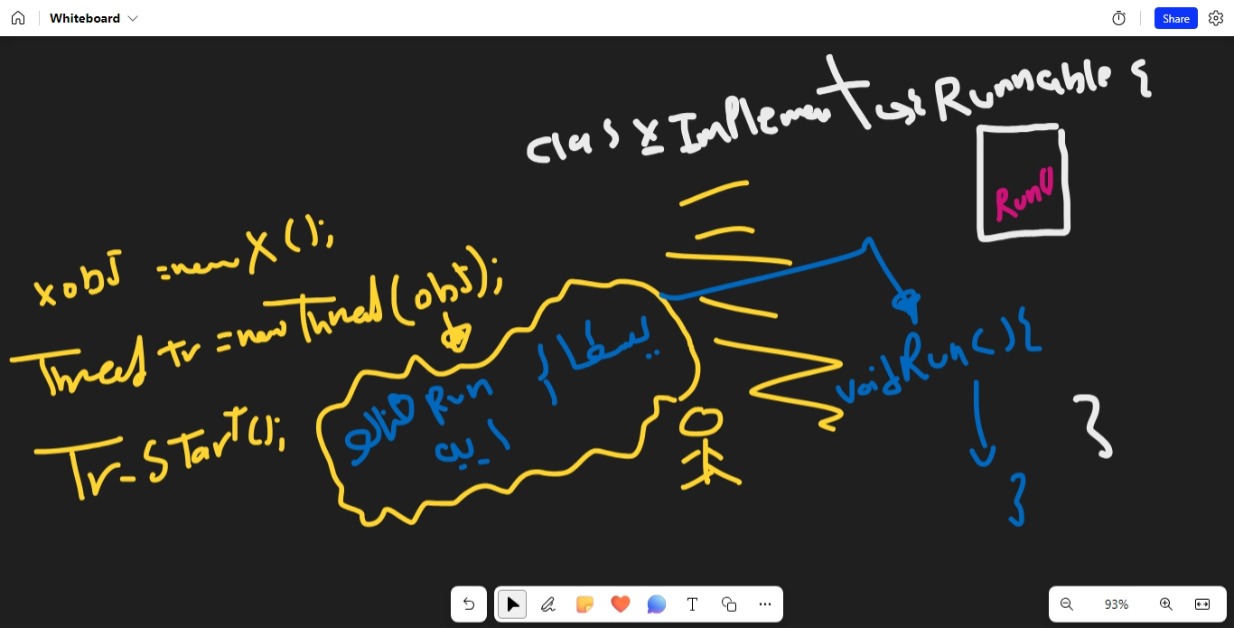 Whiteboard
Share
class x Implements Runnable {
Run()
x obj = new X();
Thread tr = new Thread(obj);
Tr. Start();
Run
void Run() {
}
}
93%